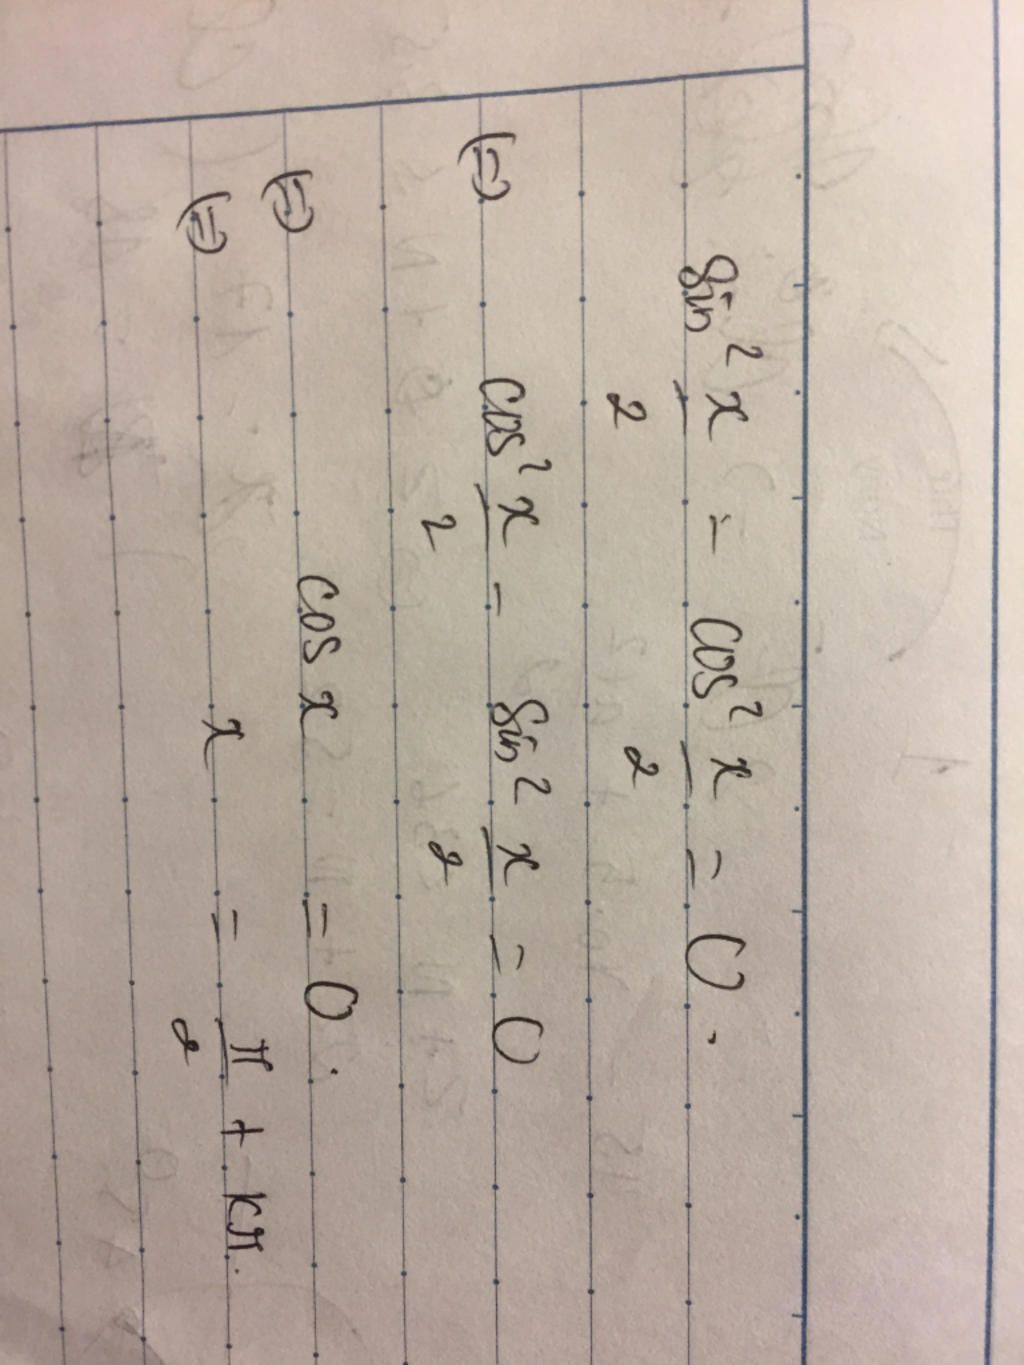 sin² x/2 - cos² x/2 = 0.
(=) cos² x/2 - sin² x/2 = 0
(=) cos x = 0.
(=) x = π/2 + kπ.